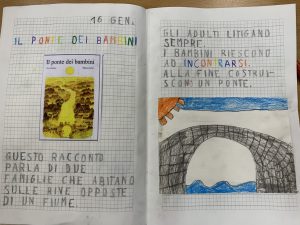 16 GEN.
IL PONTE DEI BAMBINI
Il ponte dei bambini
QUESTO RACCONTO
PARLA DI DUE
FAMIGLIE CHE ABITANO
SULLE RIVE OPPOSTE
DI UN FIUME.
GLI ADULTI LITIGANO
SEMPRE.
I BAMBINI RIESCONO
AD INCONTRARSI.
ALLA FINE COSTRUI-
SCONO UN PONTE.